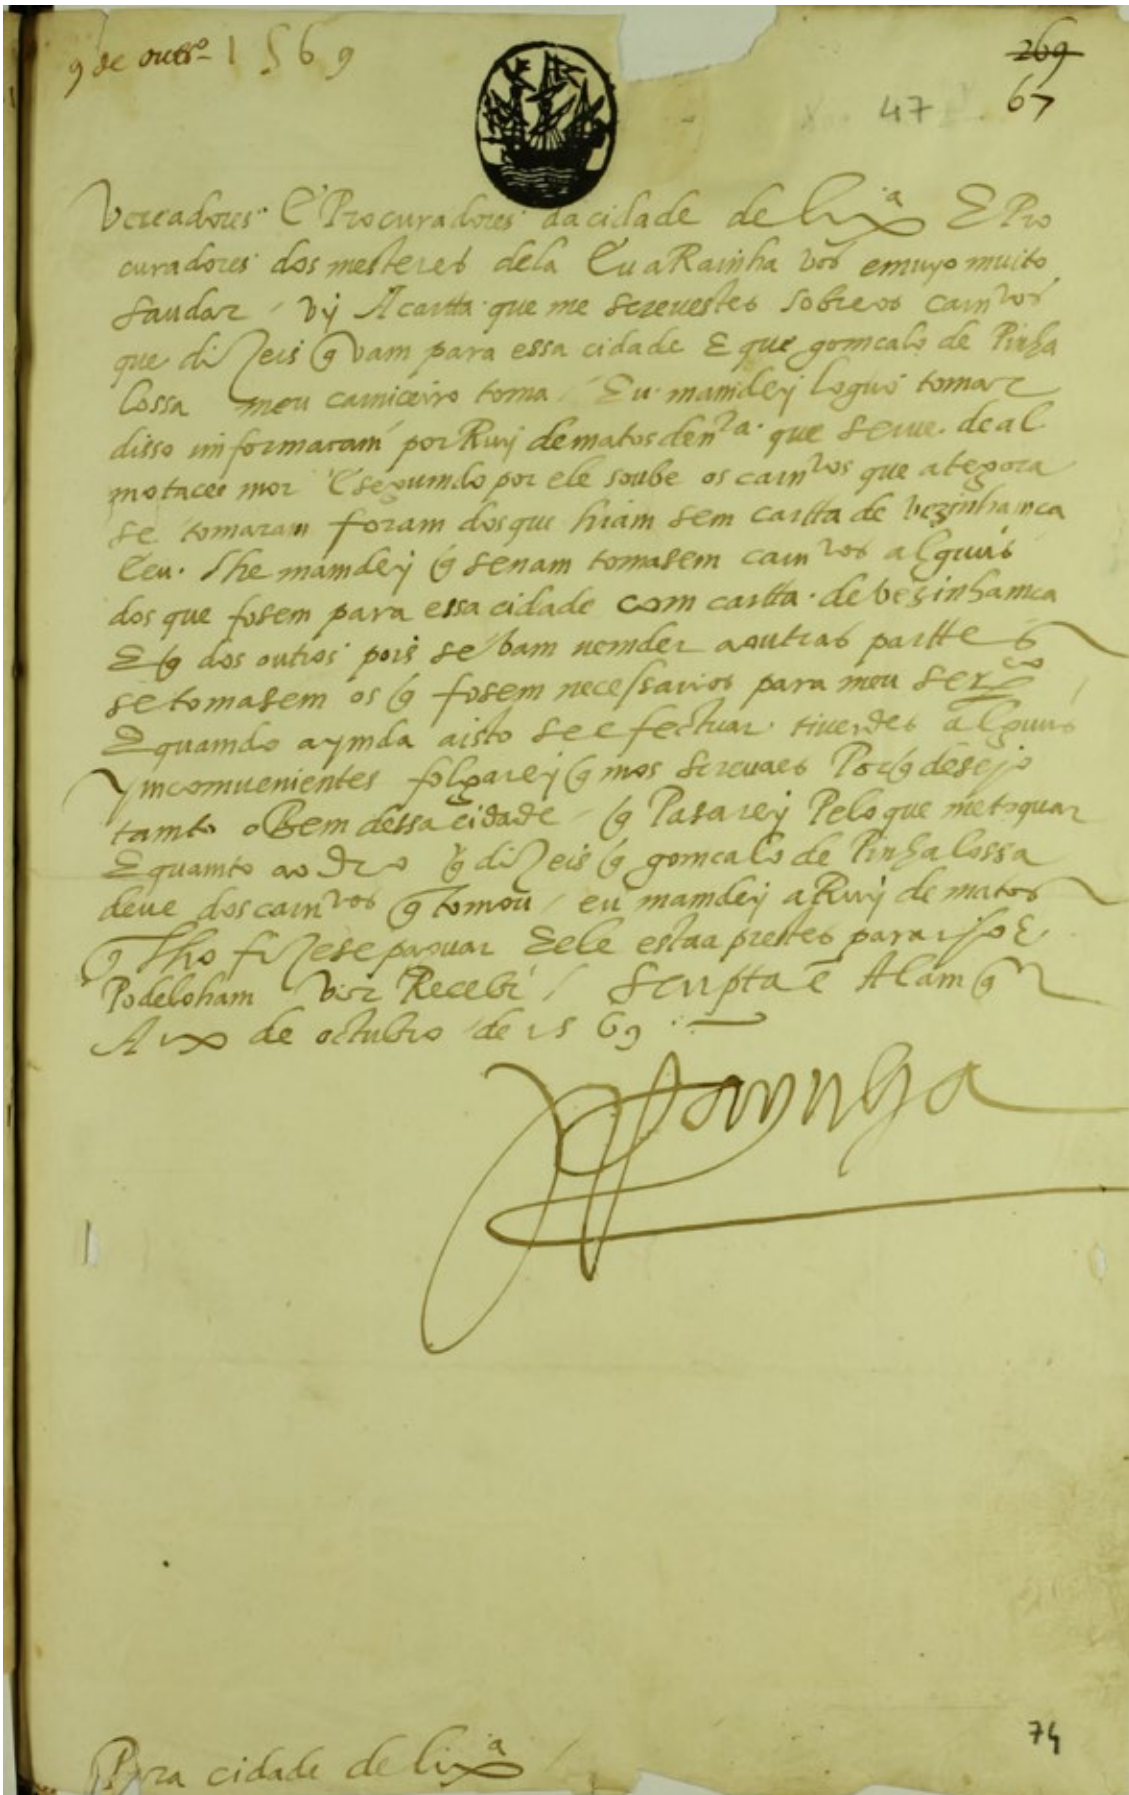 9 de outro 1569
269
47 67
Vereadores E Procuradores da cidade de lixa E Pro
curadores dos mesteres dela Eu a Rainha vos emvyo muito
saudar / Vy A cartta que me screvestes sobre os carnros
que dizeis q vam para essa cidade E que gomcalo de Pinha
lossa meu carniceiro toma / Eu mamdey loguo tomar
disso imformacam por Ruy de matos den^ra que serue de al
motace mor E segumdo por ele soube os carnros que ategora
se tomaram foram dos que hiam sem cartta de vezinhamca
E eu lhe mamdey q se nam tomasem carnros alguūs
dos que fosem para essa cidade com cartta de vezinhamca
E q dos outros pois se vam vemder a outras parttes
se tomasem os q fosem necessarios para meu serco
E quamdo aymda a isto se efectuar tiverdes alguūs
ymcomvenientes folgarey q mos screvaes Porq desejo
tamto o Bem dessa cidade q Pasarey Pelo que me toquar
E quamto ao dro q dizeis q gomcalo de Pinhalossa
deve dos carnros q tomou / eu mamdey a Ruy de matos
q lho fizese paguar E ele estaa prestes para isso E
Podeloham vir Receber / Scripta ē Alamqr
A ix de octubro de 1569
Raynha
Para cidade de lixa
74